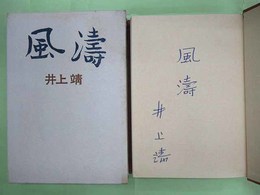 風濤
井上靖
風
濤
井上靖